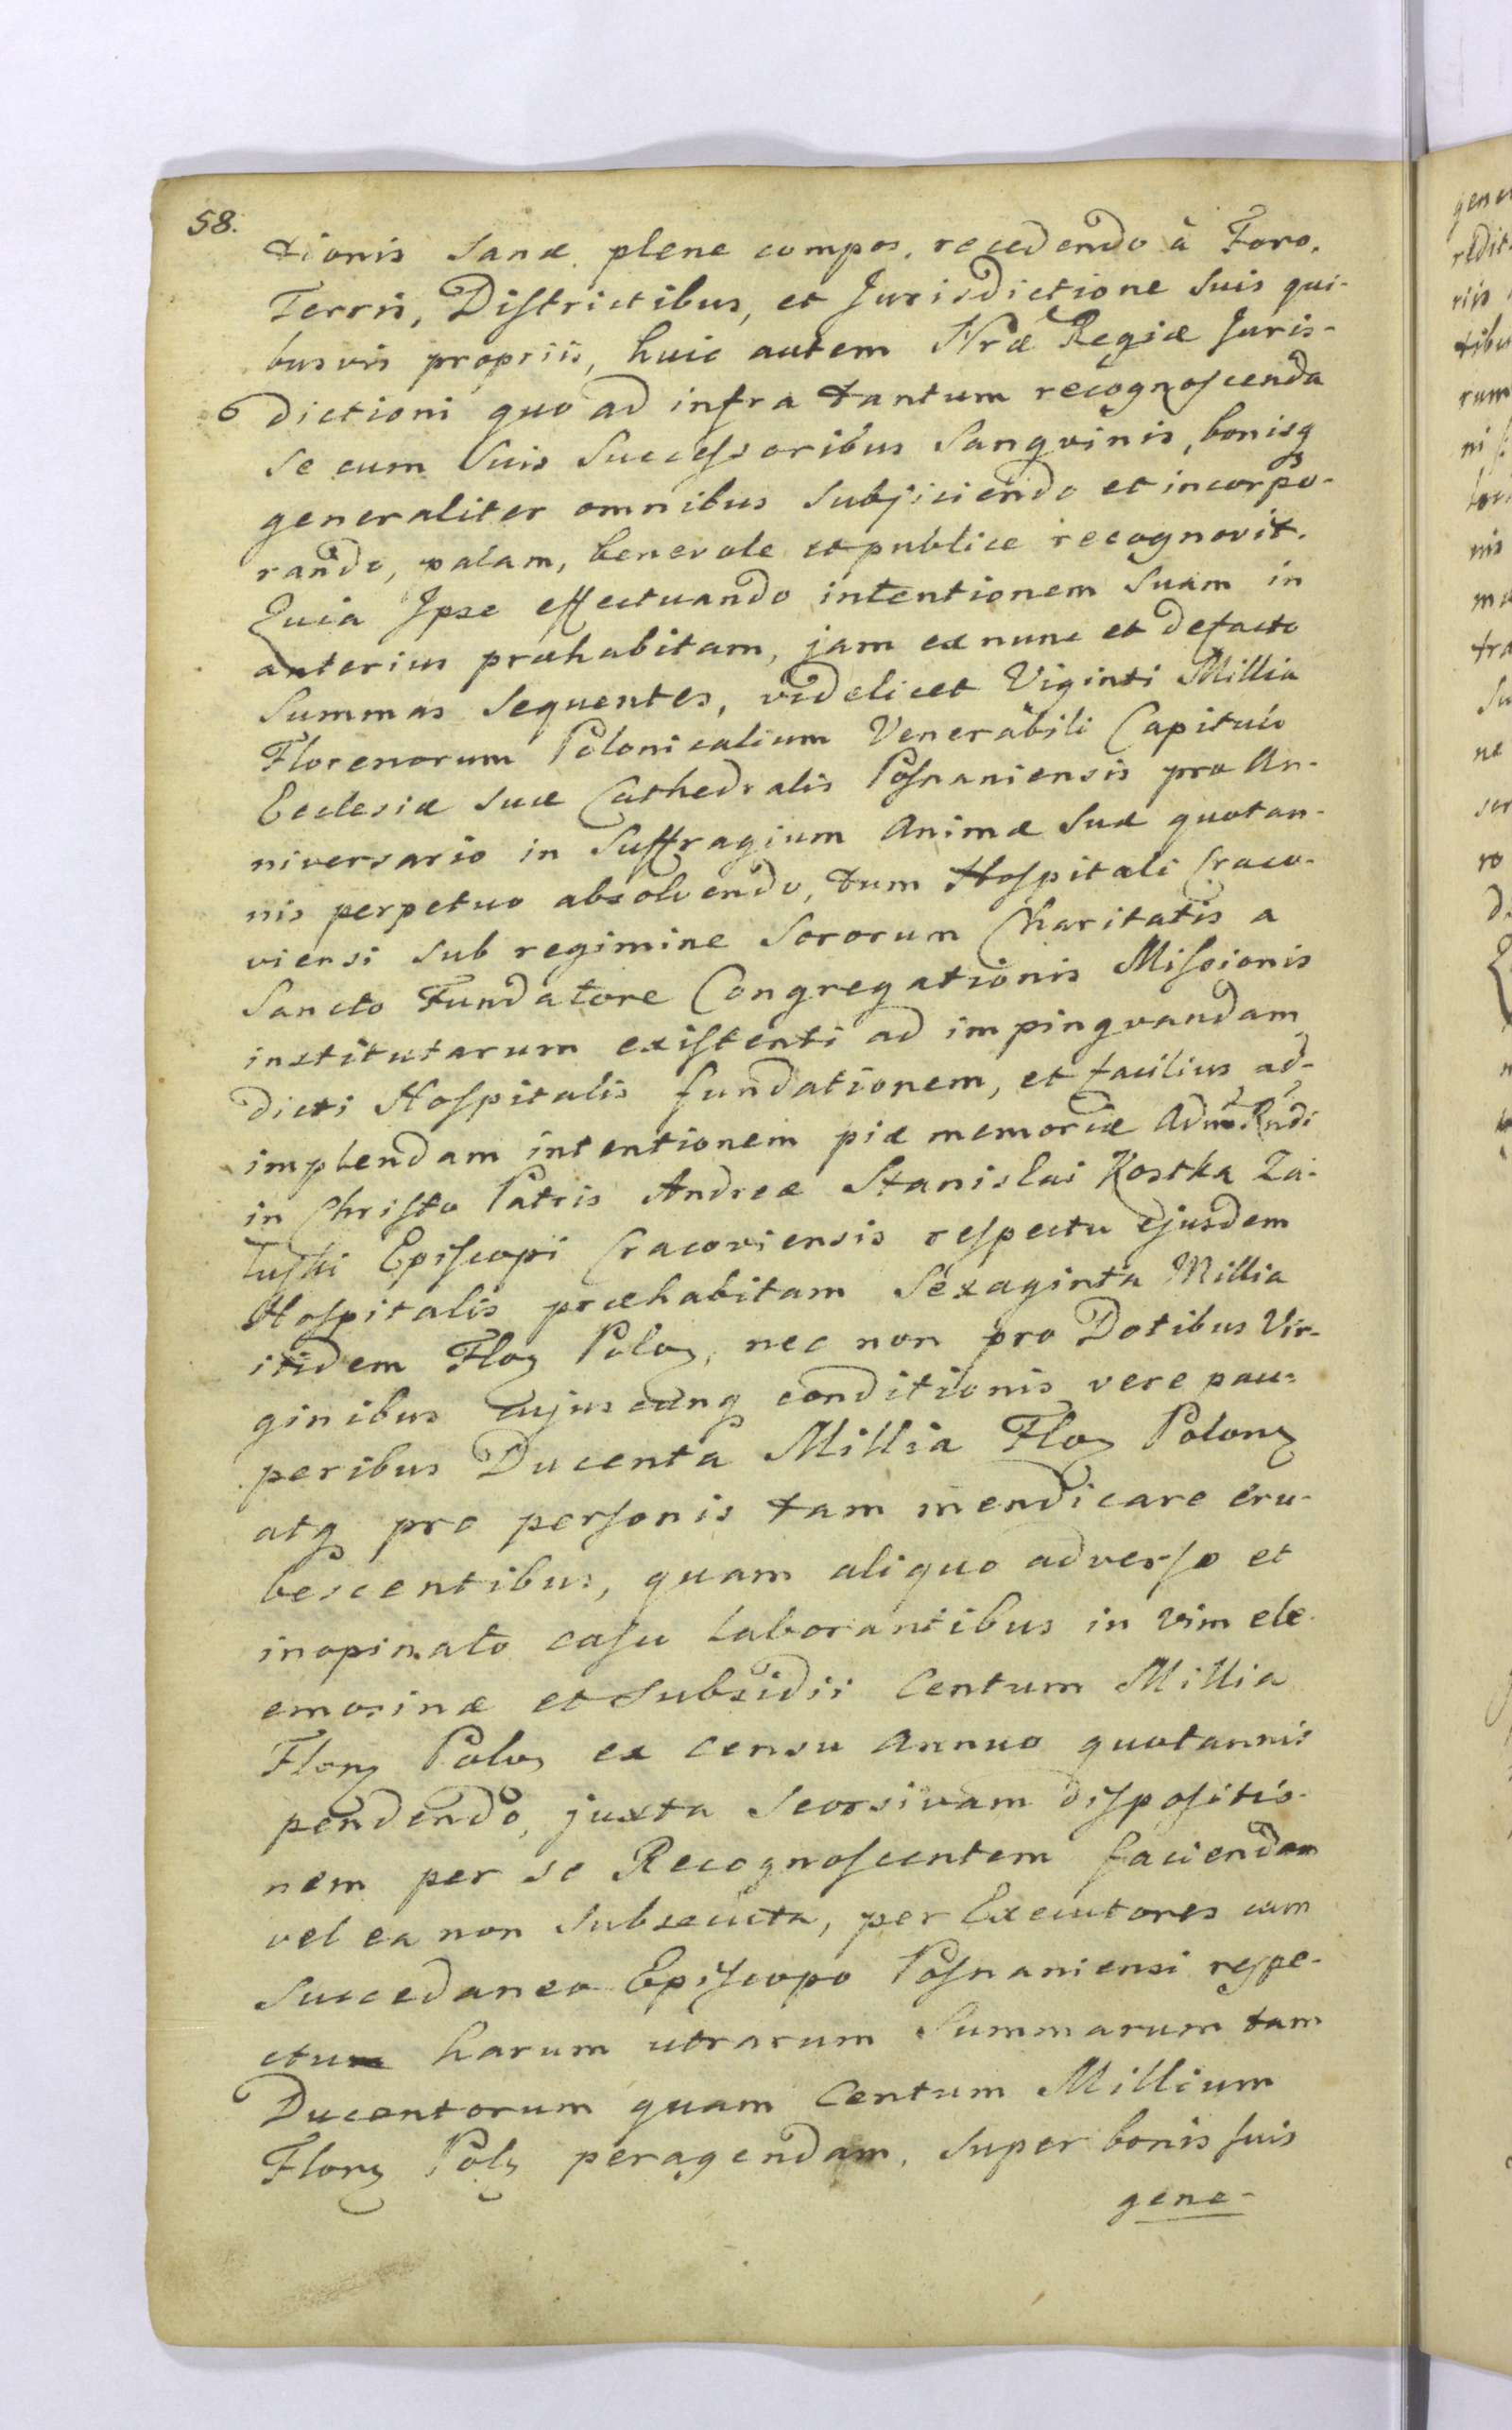 58.
tionis sanæ plene compos, recedendo à Foro,
Terris, Districtibus, et Jurisdictione suis qui-
busvis propriis, huic autem Nræ Regiæ Juris-
dictioni quo ad infra tantum recognoscenda
se cum suis Successoribus Sangvinis, bonisq
generaliter omnibus subjiciendo et incorpo-
rando, palam, benevole et publice recognovit.
Quia Ipse effectuando intentionem suam in
anterius præhabitam, jam ex nunc et defacto
Summas sequentes, videlicet Viginti Millia
Florenorum Polonicalium Venerabili Capitulo
Ecclesiæ suæ Cathedralis Posnaniensis pro An-
niversario in Suffragium Animæ suæ quotan-
nis perpetuo absolvendo, tum Hospitali Craco-
viensi sub regimine Sororum Charitatis a
Sancto Fundatore Congregationis Missionis
institutarum existenti ad impingvandam
dicti Hospitalis fundationem, et facilius ad-
implendam intentionem piæ memoriæ Adm Rndi
in Christo Patris Andreæ Stanislai Kostka Za-
luski Episcopi Cracoviensis respectu ejusdem
Hospitalis præhabitam Sexaginta Millia
itidem Flor Polon, nec non pro Dotibus Vir-
ginibus cujuscunq conditionis vere pau-
peribus Ducenta Millia Flor Polon
atq pro personis tam mendicare eru-
bescentibus, quam aliquo adverso et
inopinato casu laborantibus in vim ele
emosinæ et subsidii Centum Millia
Floren Polon ex censu annuo quotannis
pendendo, juxta seorsivam dispositio-
nem per se Recognoscentem faciendam
vel ea non subsecuta, per Executores cum
succedaneo Episcopo Posnaniensi respe-
ctu harum utrarum Summarum tam
Ducentorum quam Centum Millium
Floren Pol peragendam, super bonis suis
gene-